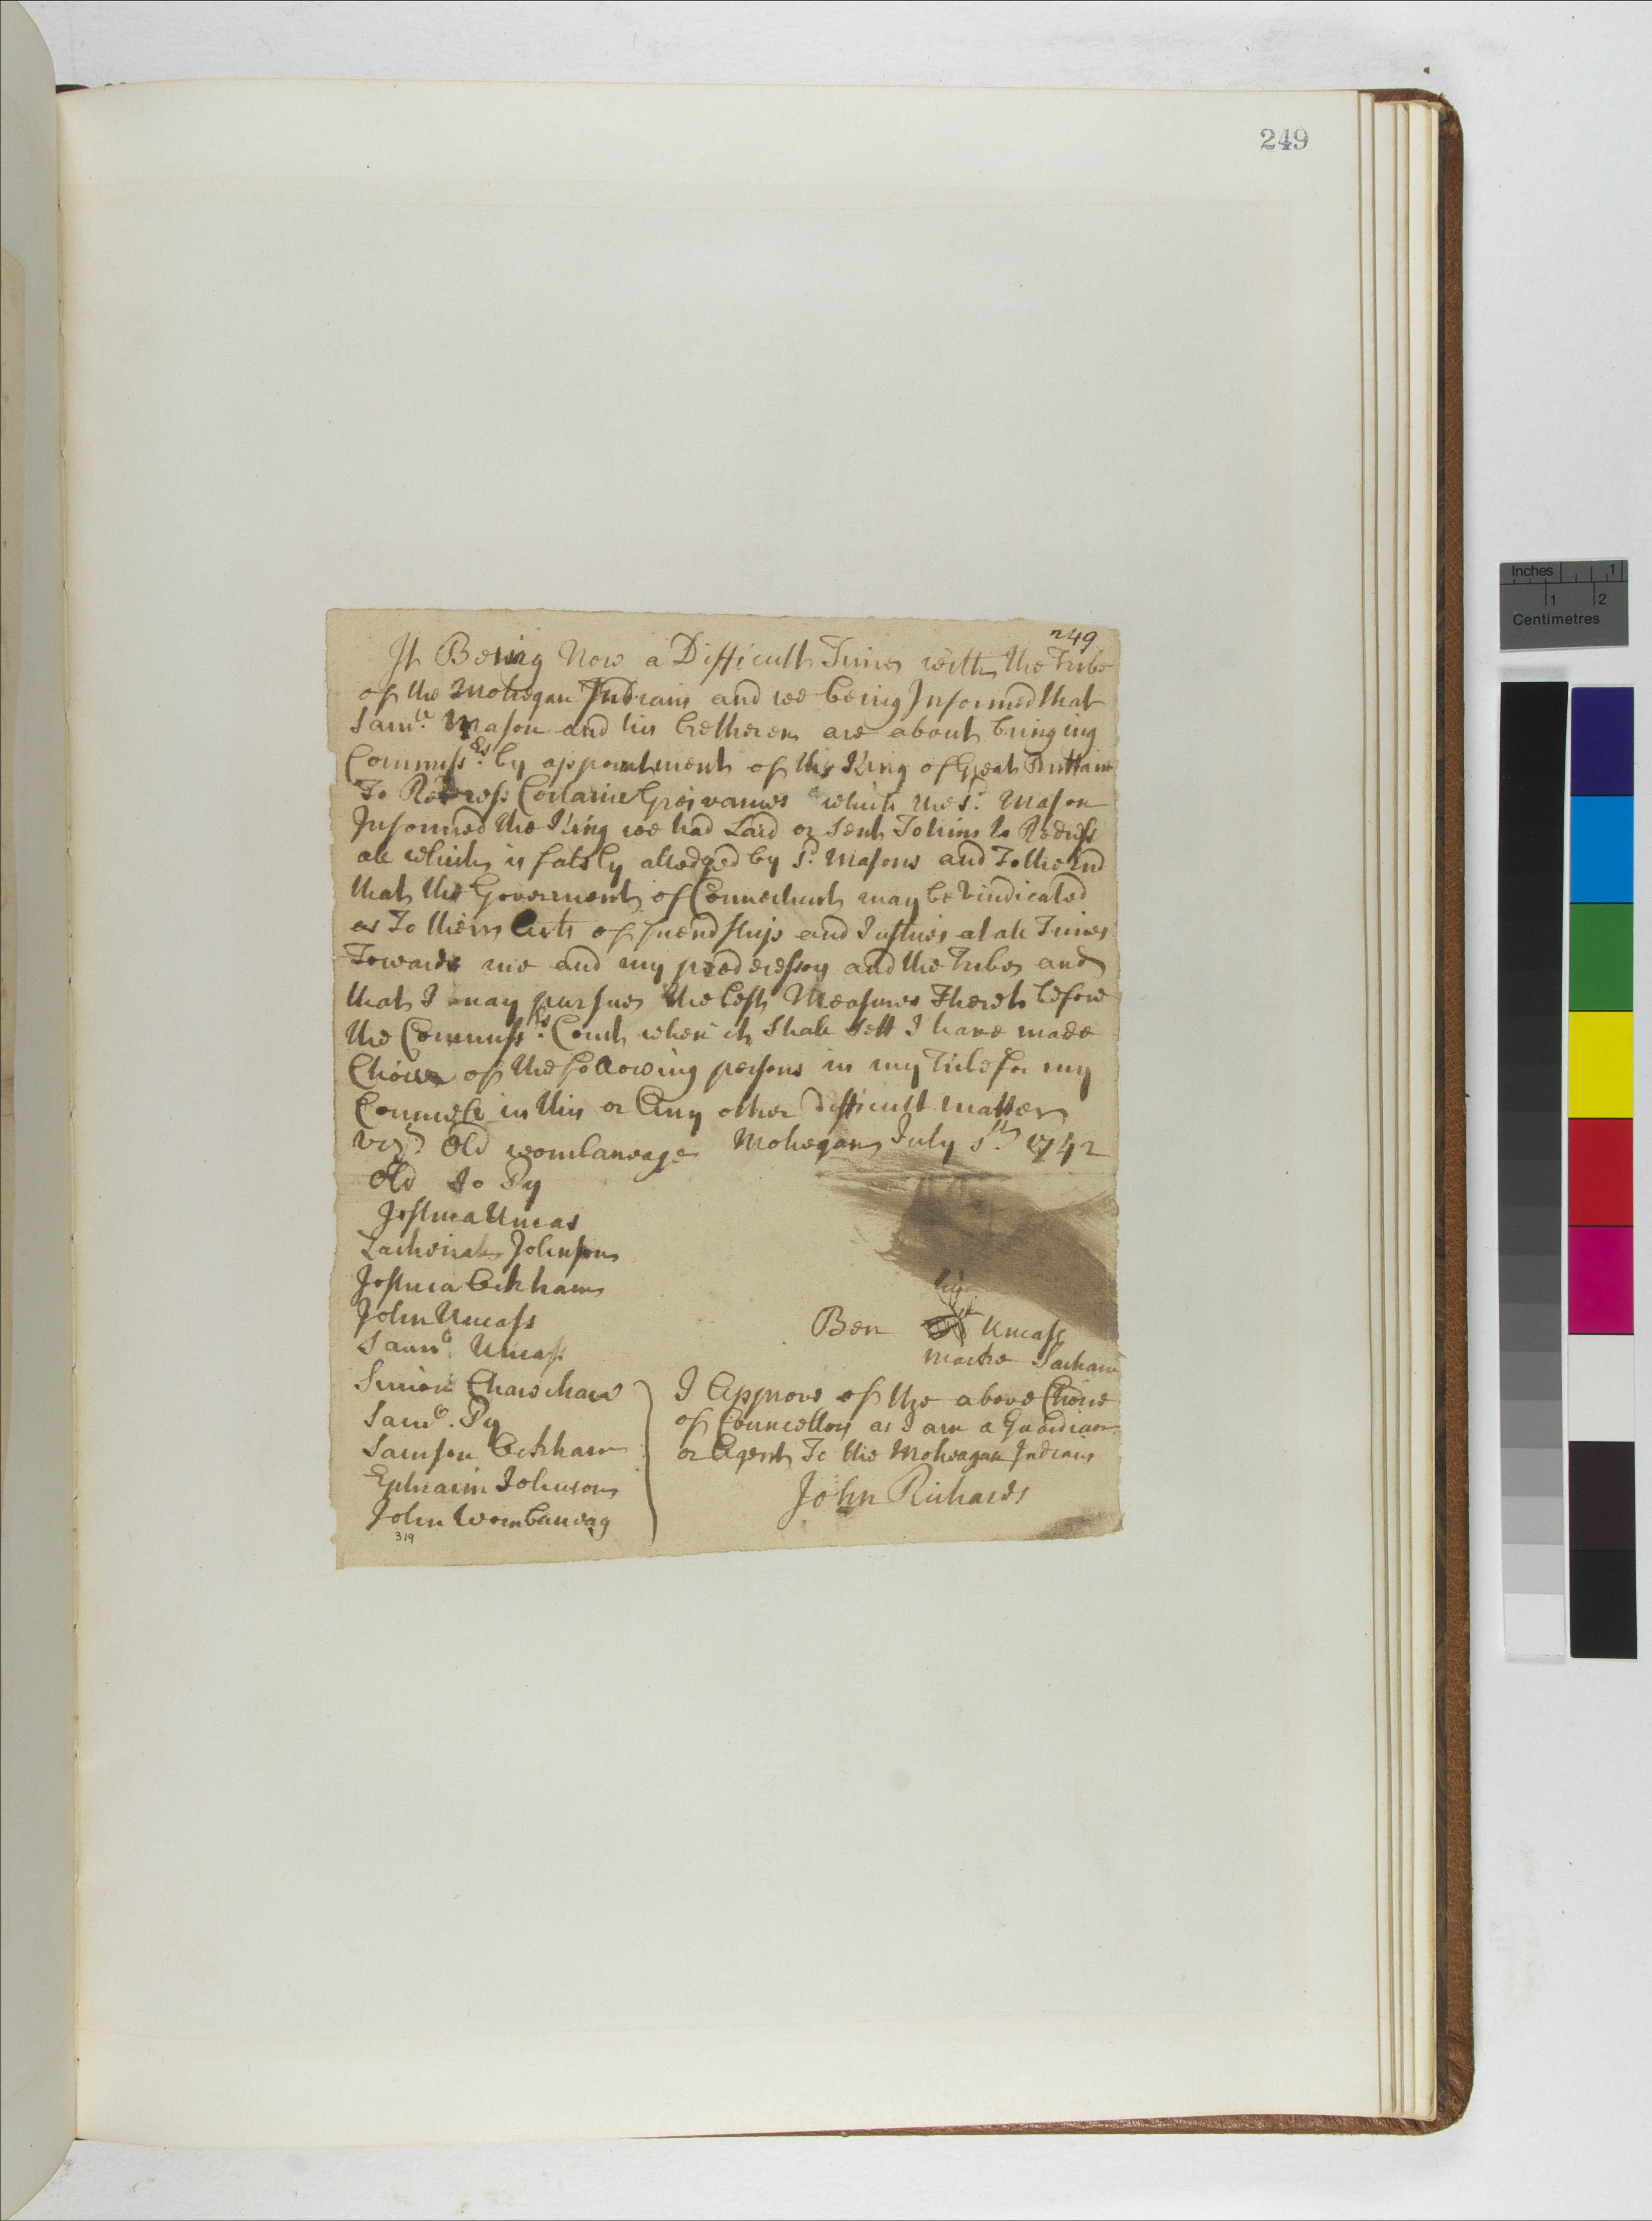 249
249
It Being Now a Difficult Times with the Tribe
of the Mohegan Indians and we being Informed that
Samll. Mason and his bretheren are about bringing
Commissrs. by appointment of this King of Great Brittain
To Redress Certaine Greivances which the sd. Mason
Informed the King we had Laid or Sent To him to Redress
all which is falsly alledged by sd. Masons and To the End
that the Goverment of Connecticut may be Vindicated
as To theirs Acts of friendship and Justice at all Times
Towards me and my predecessors and the Tribe and
that I may pursue the best Measures Therein before
the Commissrs. Court when it Shall Sett I have made
Choice of the following persons in my Tribe for my
Councell in this or Any other difficult matters
viz. Old wombanvage Mohegan July 1742
Old Jo Py
Joshua Uncas
Zacheriah Johnson
Joshua Cockham
John Uncass
Samll Uncass
Simion Chawchaw
Samll. Py
Samson Cockham
Ephraim Johnson
John Wombanvag
319
his
Ben Uncass
marke Sacham
I Approve of the above Choice
of Councellors as I am a Guardian
or Agent To the Moheagan Indians
John Richards
Inches 1
1 2
Centimetres